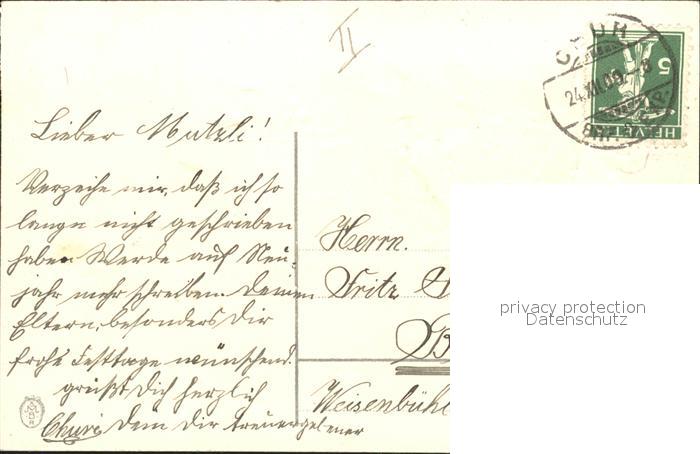 II
CHUR
24.XII.09.-8
BRF.
5
HELVETIA
Lieber Mutzli!
Verzeihe mir, daß ich so
lange nicht geschrieben
haben Werde auf Neu-
jahr mehr schreiben. Deinen
Eltern, besonders Dir
frohe Festtage wünschend.
grüßt Dich herzlich
Dein Dir treuergebener
Churi
Herrn.
Fritz
Weisenbühl
privacy protection
Datenschutz